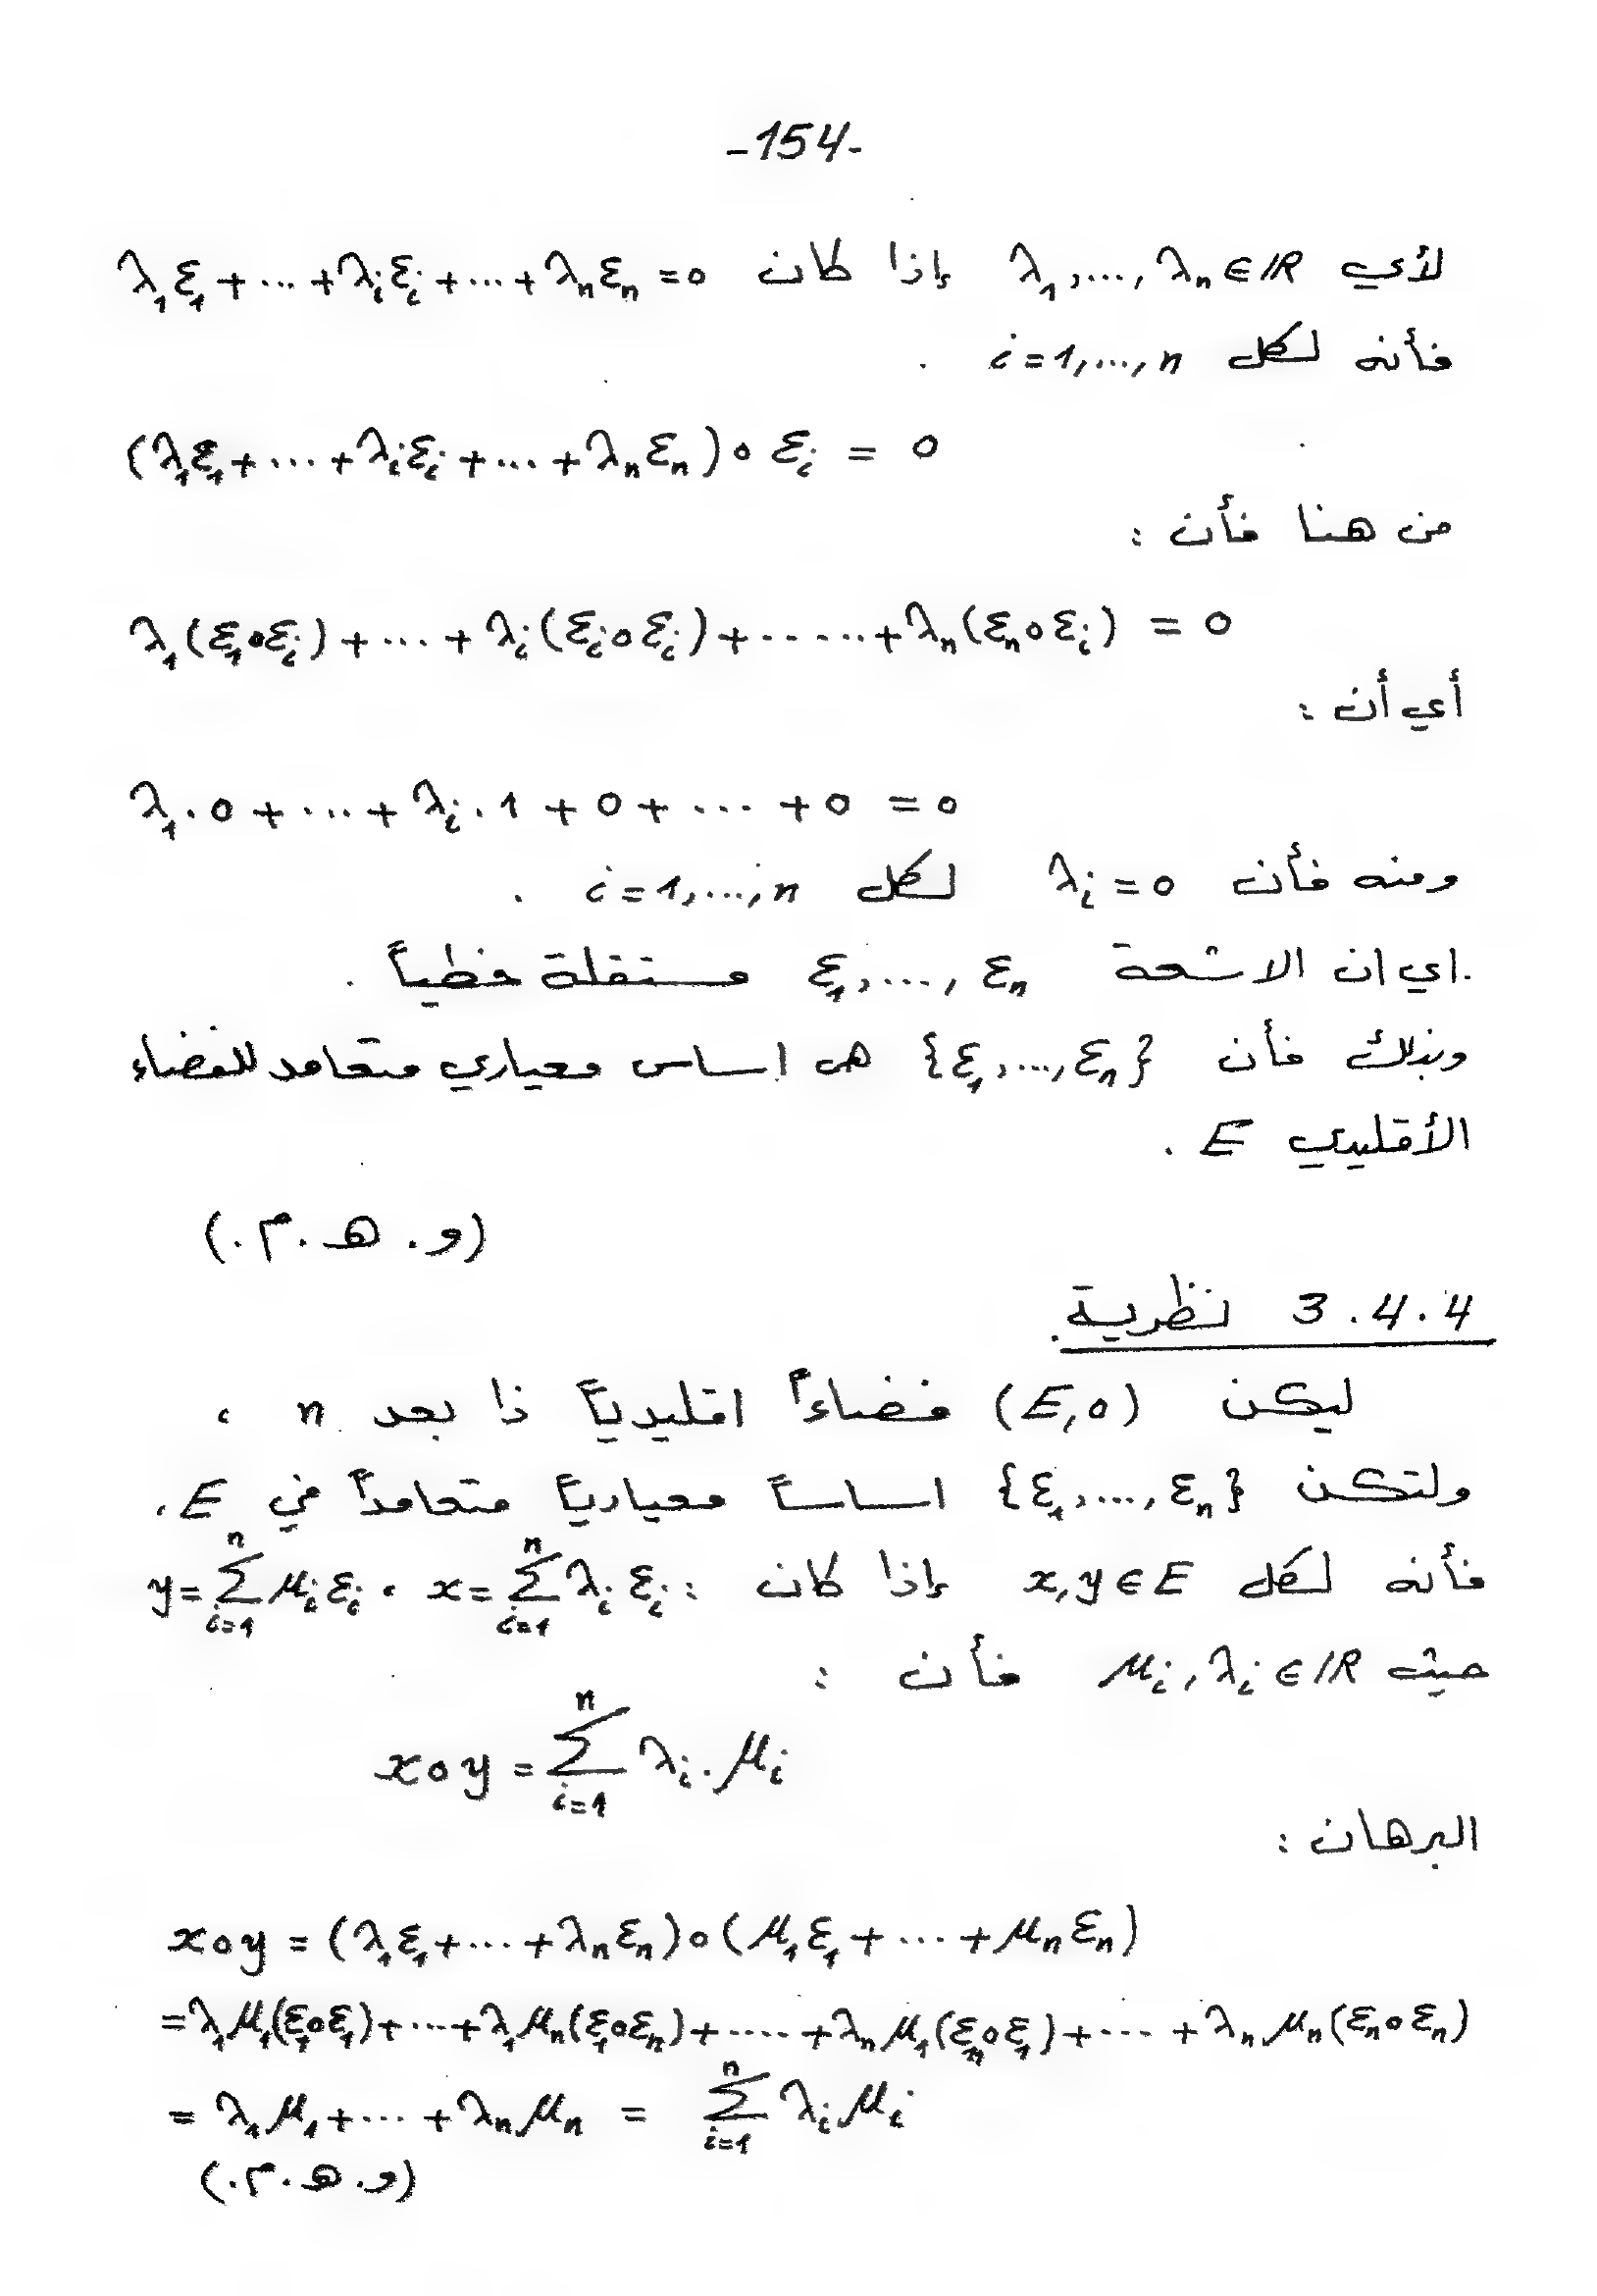 -154-
لأي λ₁,...,λₙ∈ℝ إذا كان λ₁ε₁+...+λᵢεᵢ+...+λₙεₙ=0
فأنه لكل i=1,...,n .
(λ₁ε₁+...+λᵢεᵢ+...+λₙεₙ)∘εᵢ = 0
من هنا فأن :
λ₁(ε₁∘εᵢ)+...+λᵢ(εᵢ∘εᵢ)+......+λₙ(εₙ∘εᵢ) = 0
أي أن :
λ₁.0+...+λᵢ.1+0+...+0 =0
ومنه فأن λᵢ=0 لكل i=1,...,n .
اي ان الاشعة ε₁,...,εₙ مستقلة خطياً .
وبذلك فأن {ε₁,...,εₙ} هي اساس معياري متعامد للفضاء
الأقليدي E .
(و.هـ.م.)
3.4.4 نظرية.
ليكن (E,∘) فضاءاً اقليدياً ذا بعد n ،
ولتكن {ε₁,...,εₙ} اساساً معيارياً متعامداً في E .
فأنه لكل x,y∈E إذا كان : x=∑ⁿᵢ₌₁λᵢεᵢ ، y=∑ⁿᵢ₌₁μᵢεᵢ
حيث μᵢ,λᵢ∈ℝ فأن :
x∘y=∑ⁿᵢ₌₁λᵢ.μᵢ
البرهان :
x∘y = (λ₁ε₁+...+λₙεₙ)∘(μ₁ε₁+...+μₙεₙ)
=λ₁μ₁(ε₁∘ε₁)+...+λ₁μₙ(ε₁∘εₙ)+....+λₙμ₁(εₙ∘ε₁)+...+λₙμₙ(εₙ∘εₙ)
= λ₁μ₁+...+λₙμₙ = ∑ⁿᵢ₌₁λᵢμᵢ
(و.هـ.م.)